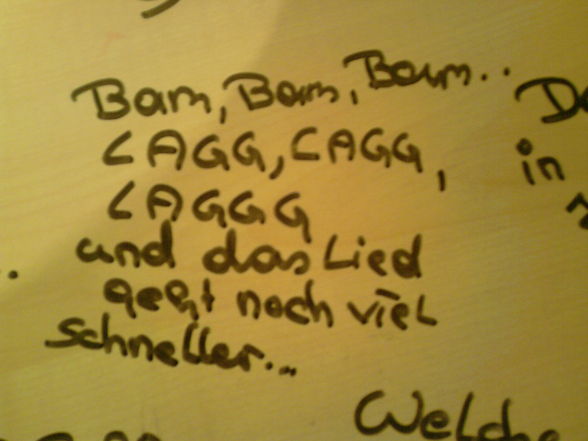 Bam, Bam, Bam..
LAGG, LAGG,
LAGGG
und das Lied
geht noch viel
schneller...
in
Welche